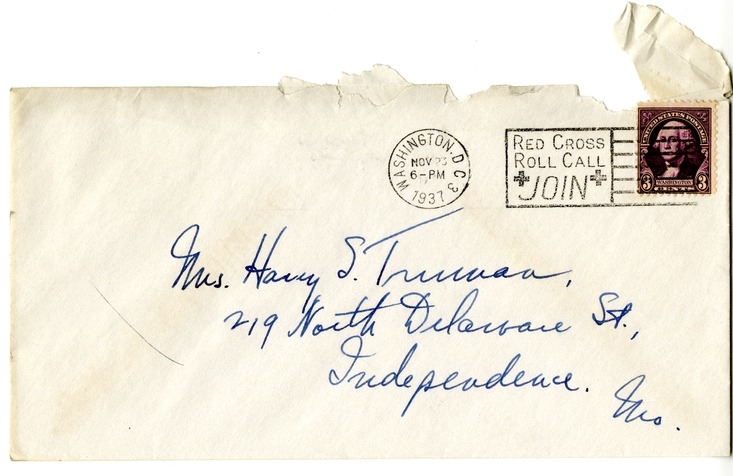 WASHINGTON, D.C. 3
NOV 23
6-PM
1937
RED CROSS
ROLL CALL
JOIN
UNITED STATES POSTAGE
3 WASHINGTON 3
CENTS
Mrs. Harry S. Truman,
219 North Delaware St.,
Independence.
Mo.